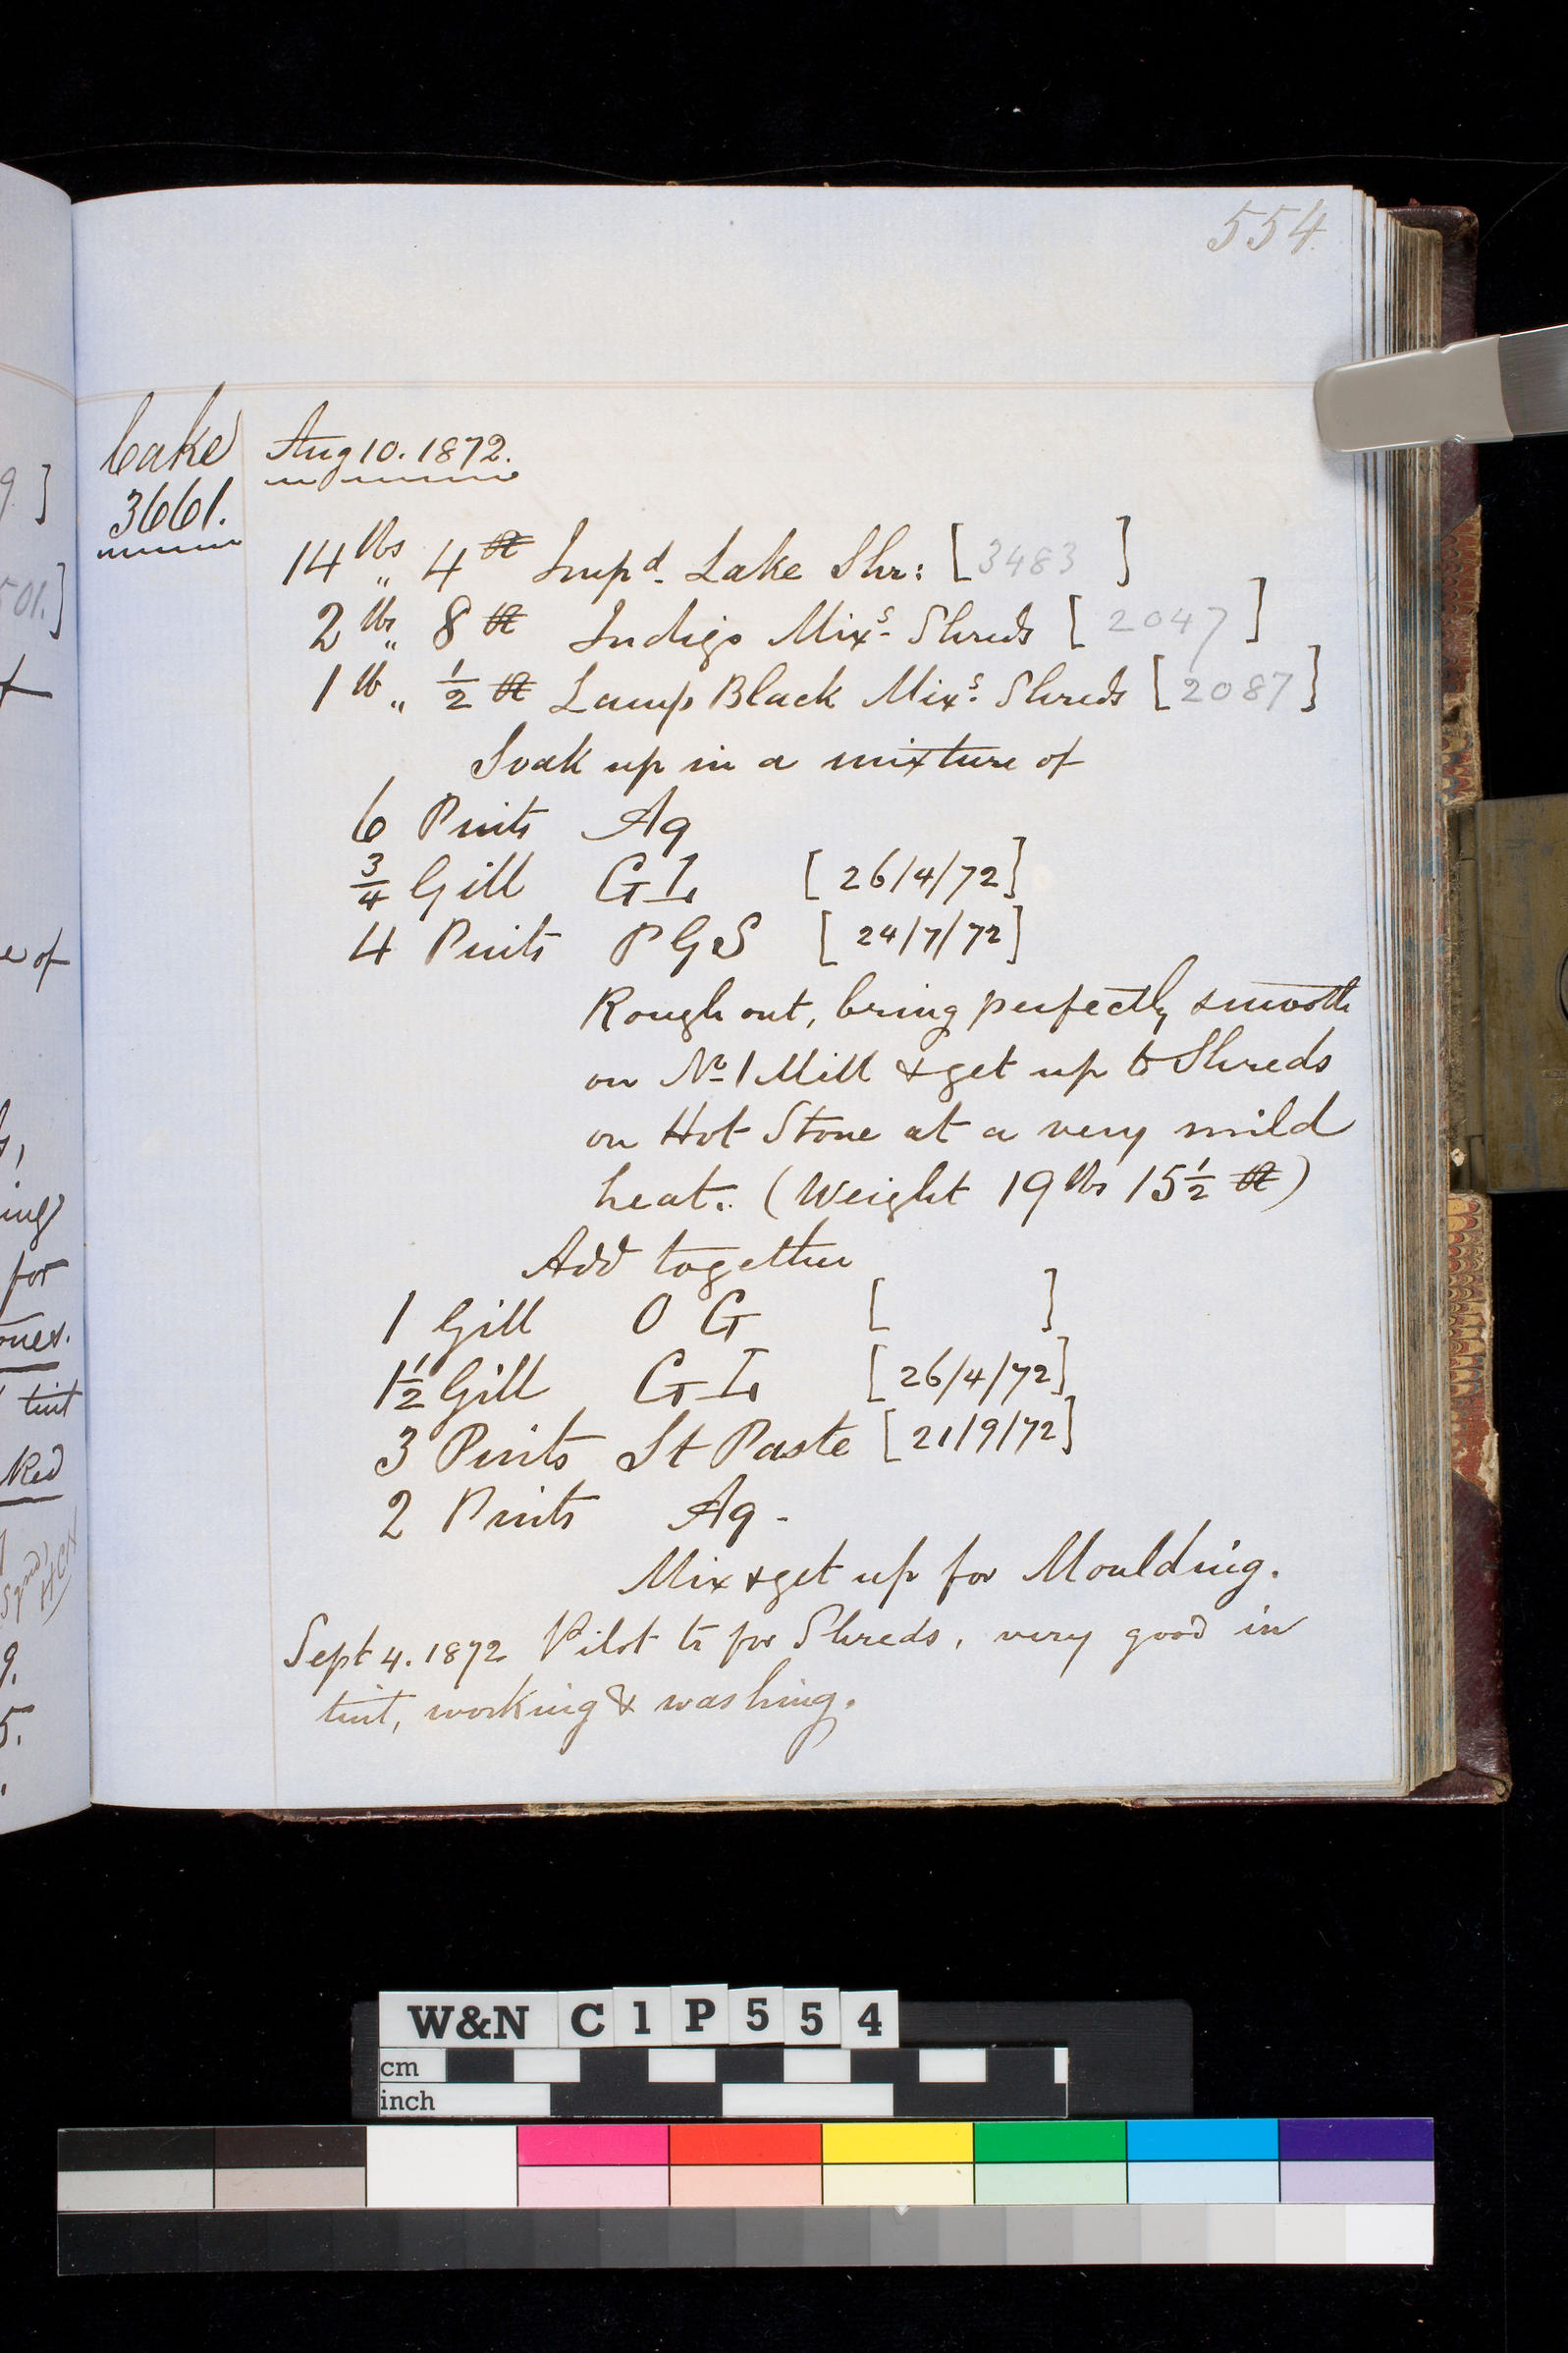 554.
Cake
3661.
Aug 10. 1872.
14 lbs „ 4 oz Impd. Lake Shr: [3483 ]
2 lbs „ 8 oz Indigo Mixs. Shreds [2047]
1 lb „ ½ oz Lamp Black Mixs. Shreds [2087]
Soak up in a mixture of
6 Pints Aq
¾ Gill GL [26/4/72]
4 Pints PGS [24/7/72]
Rough out, bring perfectly smooth
on No. 1 Mill & get up to Shreds
on Hot Stone at a very mild
heat. (Weight 19 lbs 15½ oz)
Add together
1 Gill O G [ ]
1½ Gill GL [26/4/72]
3 Pints St Paste [21/9/72]
2 Pints Aq -
Mix & get up for Moulding.
Sept 4. 1872 Pilot tr for Shreds, very good in
tint, working & washing.
9 ]
501.]
e of
s,
ing
for
ones.
tint
Red
9.
5.
W&N C 1 P 5 5 4
cm
inch